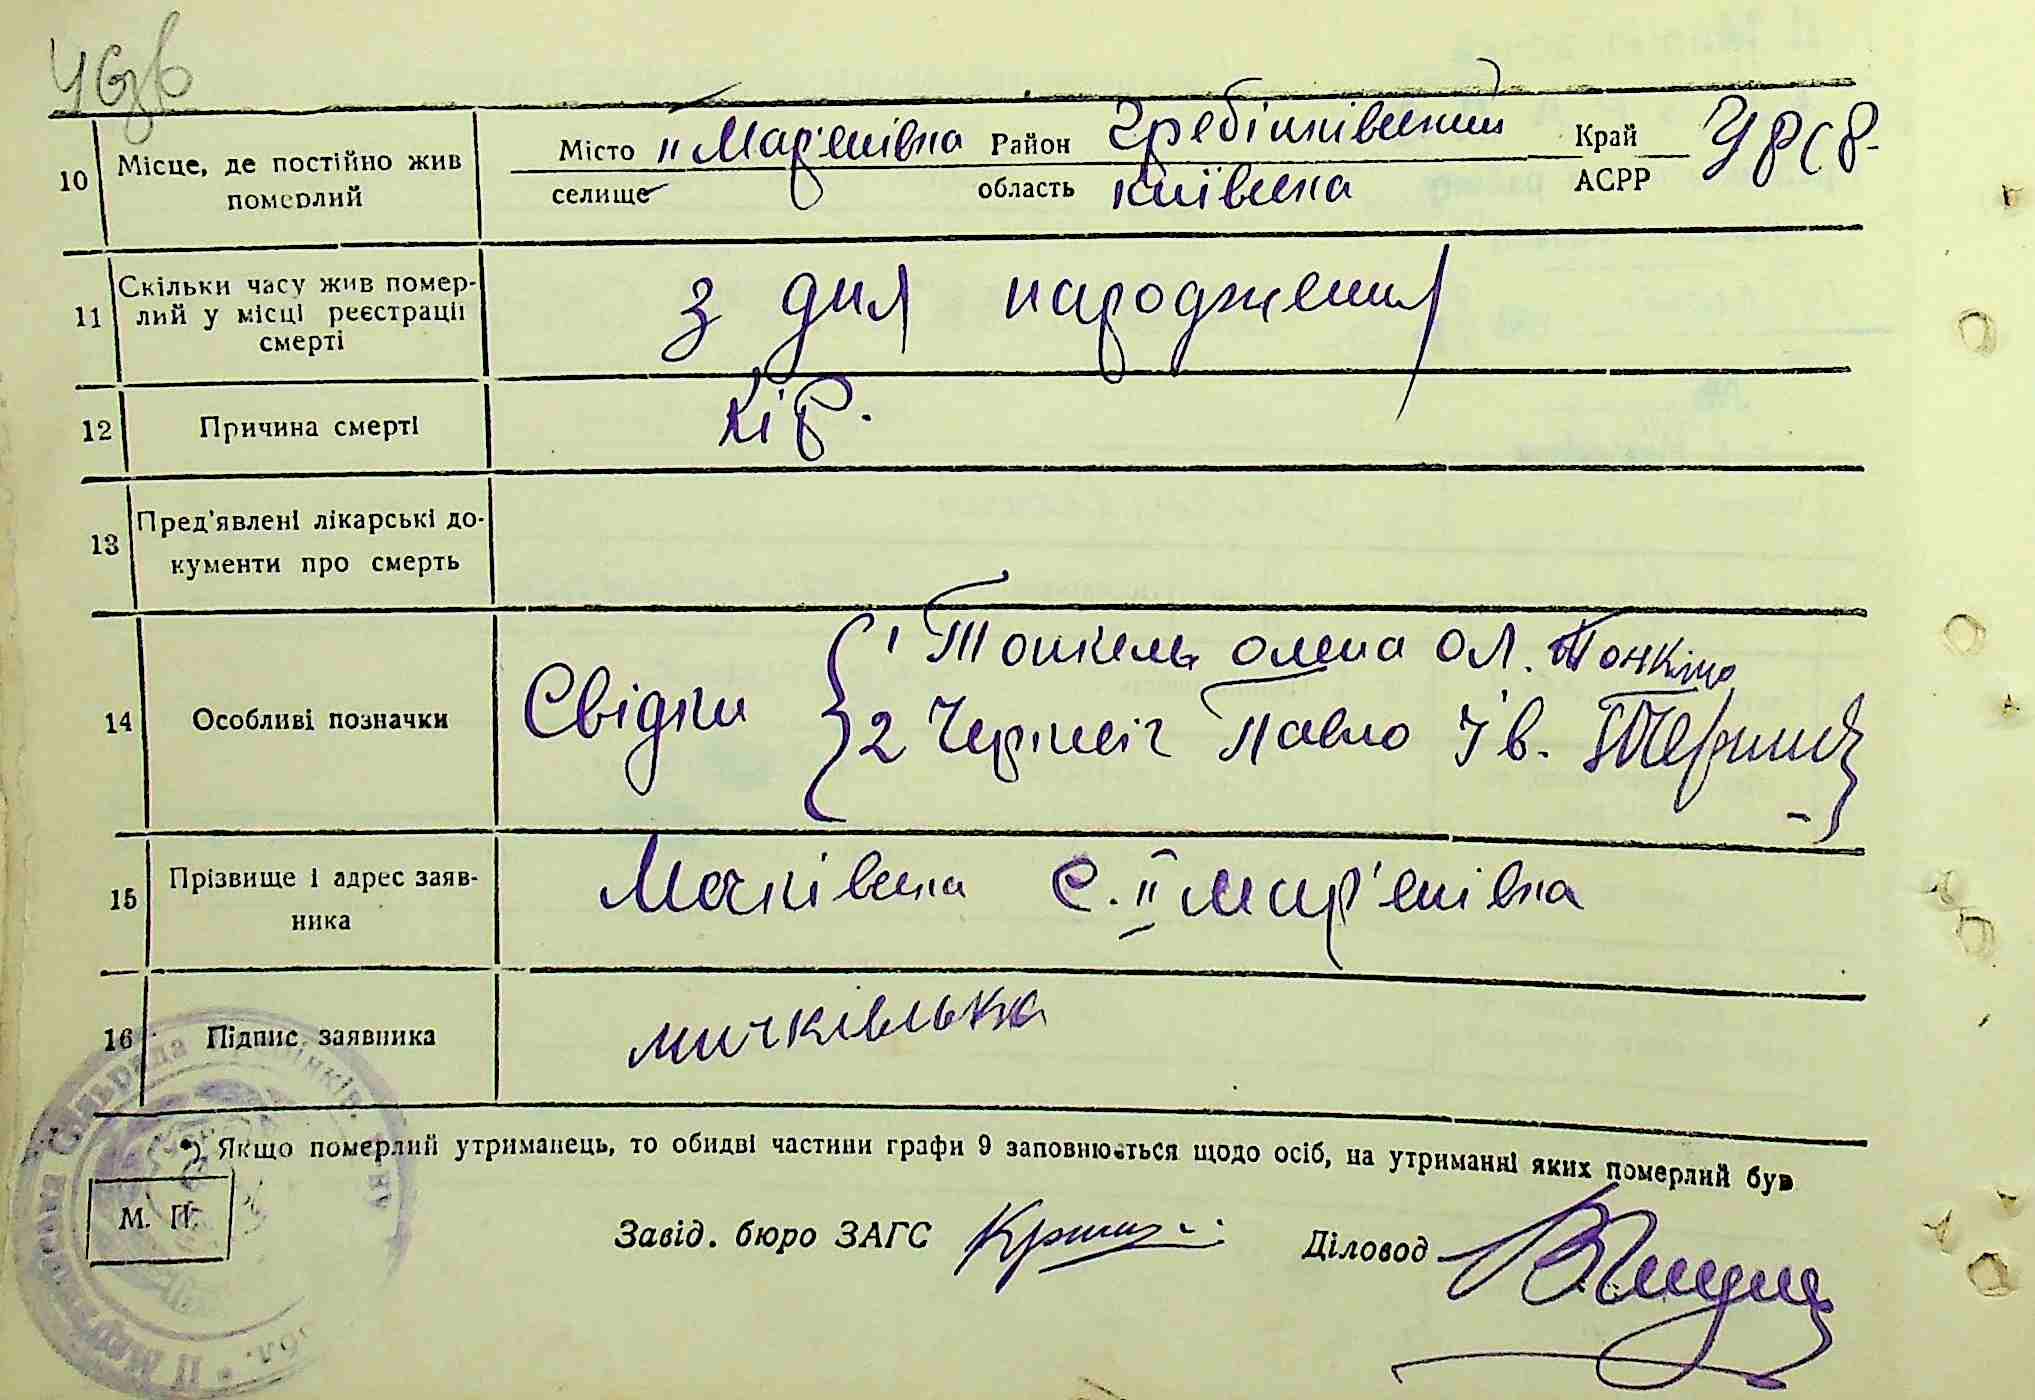 10 Місце, де постійно жив померлий
Місто II Мар'янівна Район Гребінківський Край УРСР
селище область Київська АСРР
11 Скільки часу жив помер-
лий у місці реєстрації
смерті
з дня народження
12 Причина смерті
Кір.
13 Пред'явлені лікарські до-
кументи про смерть
14 Особливі позначки
Свідки
1 Олена Ол.
2 Павло Ів.
15 Прізвище і адрес заяв-
ника
Мочківська с. II Мар'янівка
16 Підпис заявника
*) Якщо померлий утриманець, то обидві частини графи 9 заповнюється щодо осіб, на утриманні яких померлий був
М. П.
Завід. бюро ЗАГС
Діловод